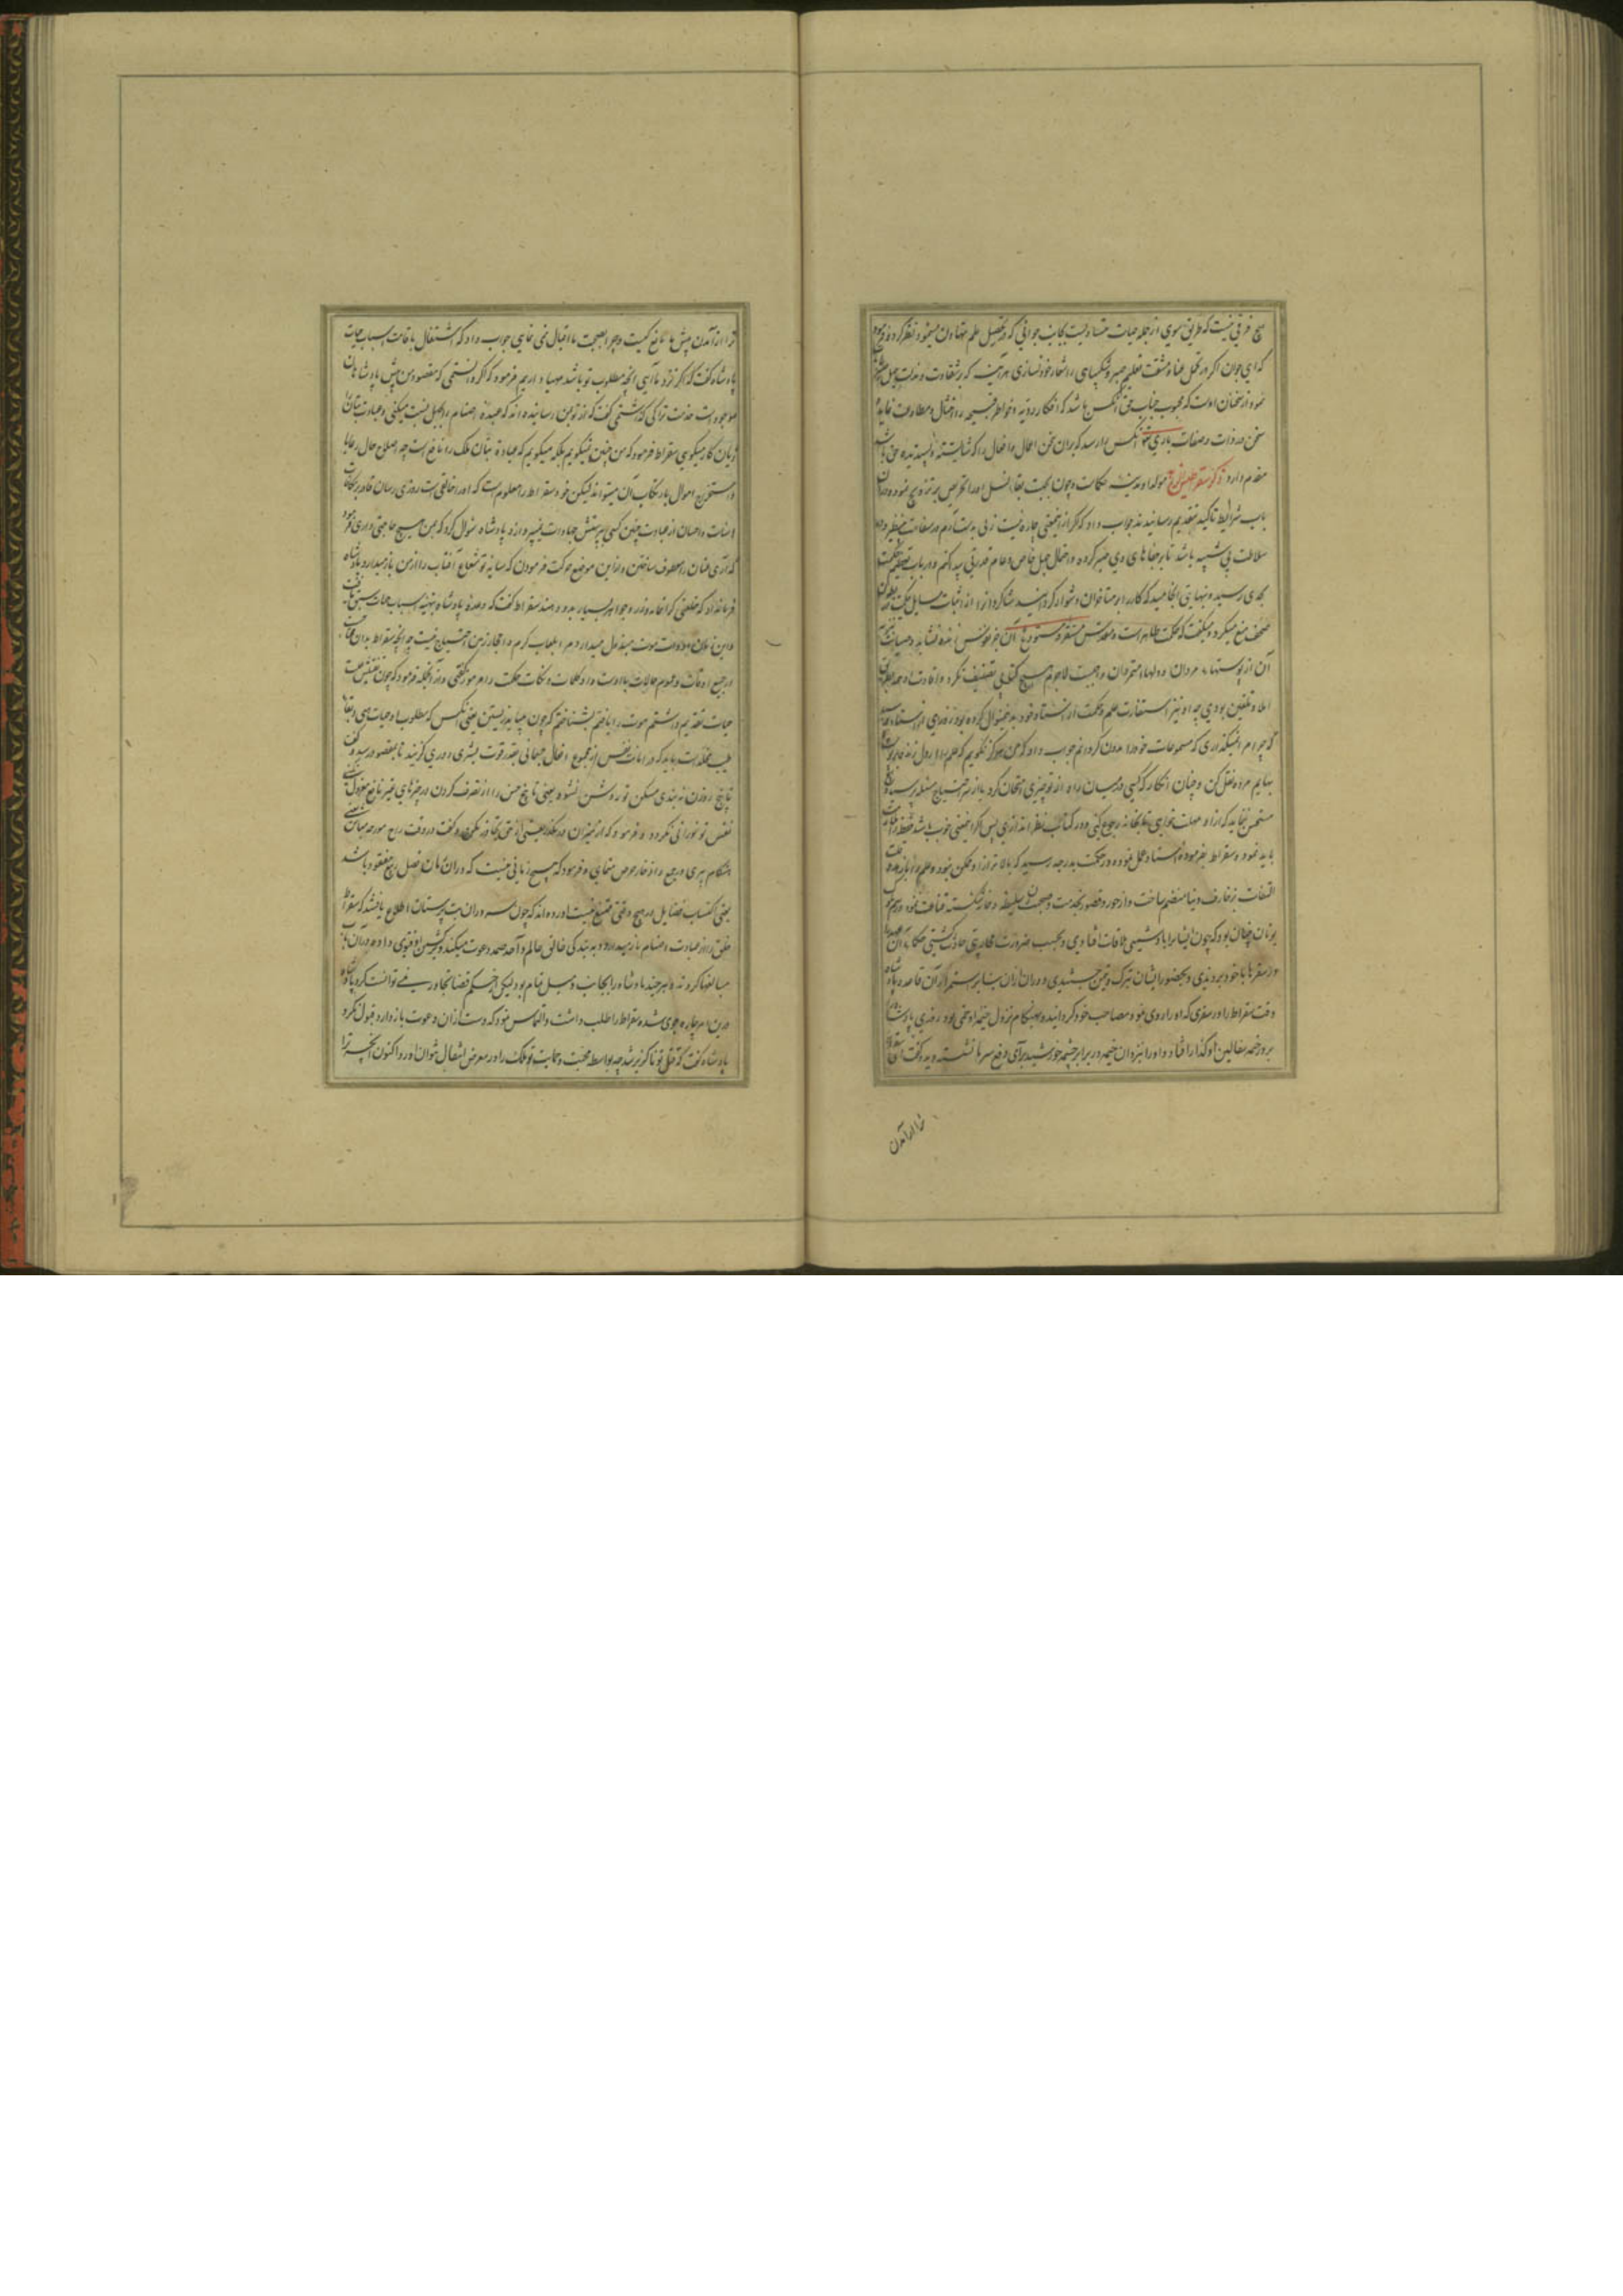 هیچ فرقی نیست که طریق سوی از جمله جهات متساویست بجانب جوانی که در تحصیل علم تهاون مینمود نظر کرد و فرمود
که ای جوان اگر در تحمل عناء و مشقت تعلیم صبر و شکیبایی را شعار خود نسازی هر آینه که بر شقاوت و مذلت جهل
نمود از سخنان اوست که محبوب جناب حق آنکس باشد که افکار ردیه و خواطر قبیحه را امتثال و مطاوعت ننماید و
سخن در ذات و صفات باری آنکس را رسد که بر آن سخن اعمال و افعال را که شایسته و پسندیده حق باشد
مقدم دارد ذکر سقراط مولد او مدینه حکمات و چون بجهت بقاء نسل او را تحریص بر تزویج نمودند و در آن
باب شرایط تاکید بتقدیم رسانیدند جواب داد که اگر از اینمعنی چاره نیست زنی بدست آرم که در سفاهت بینظیر و در
سلاطت بی شبیه باشد تا بر جفاهای وی صبر کرده در احتمال جهل خاص و عام قدرتی پیدا کنم و در باب تعظیم حکمت
بحدی رسیده و بنهایتی انجامید که کار را بر متاخران دشوار گردانید شاگردانرا از اثبات مسایل حکمت در بطون
صحف منع میکرد و میگفت که حکمت طاهر است و مقدس مستقر و مستودع آن جز نفوس زنده نشاید و صیانت
آن از پوستهاء مردان و دلهاء متمردان واجبست لاجرم هیچ کتابی تصنیف نکرد و افادت او همه بطریق
املا و تلقین بودی چه او نیز استفادت علم و حکمت از استاد خود بدینمنوال کرده بود روزی از استاد پرسید
که چرا مرا نمیگذاری که مسموعات خود را مدون گردانم جواب داد که من هرگز نگویم که علم را از دل زنده
بهایم مرده نقل کن و چنان انگار که کسی در میان راه از تو چیزی امتحان کرد یا از سر احتیاج مسئله پرسید
مستحسن نماید که از او مهلت خواهی تا بخانه رجوع کنی و در کتاب نظر اندازی پس اگر اینمعنی خوب باشد حفظ را
باید نمود و سقراط بفرموده استاد عمل نموده و در حکمت بدرجه رسید که بالاتر از او ممکن نبود و علم را با زهد و
التفات بزخارف دنیا منضم ساخت و از حور و قصور بخدمت و صحبت سلیطه و غار شکسته قناعت نمود و رسم ملوک
یونان چنان بود که چون ایشانرا بادشمنی ملاقات افتادی و بحسب ضرورت محاربتی حادث گشتی حکماء آن
در سفرها با خود بردندی و بحضور ایشان تبرک و تیمن جستندی و در آن زمان بنابر استمرار آن قاعده پادشاه
وقت سقراط را در سفری که او را روی نمود مصاحب خود گردانیده و بهنگام نزول خیمه او خمی بود روزی پادشاه را
بر در خمه سفالین او گذار افتاد و او را بیرون خیمه در برابر چشمه خورشید برای دفع سرما نشسته دید و گفت ای سقراط
ترا از آمدن
ترا از آمدن پیش ما مانع کیست و چرا بصحبت ما اقبال نمی نمایی جواب داد که اشتغال باقامت اسباب حیات
پادشاه گفت که اگر نزد ما آیی آنچه مطلوب تو باشد مهیا داریم فرمود که اگر دانستمی که مقصود من پیش پادشاهان
موجودست خدمت ترا کی گذاشتمی گفت که از تو بمن رسانیده اند که عبده اصنام را بجهل نسبت میکنی و عبادت بتان را
زیان کار میگویی سقراط فرمود که من چنین نمیگویم بلکه میگویم که عبادة بتان ملک را نافع است چه اصلاح حال رعایا
و استخراج اموال بارتکاب آن میتواند لیکن خود سقراط را معلومست که او را خالقی است روزی رسان قادر بر مکافات
اسائت و احسان از عبادت چنین کسی بپرستش جمادات نمیپردازد پادشاه سوال کرد که بمن هیچ حاجتی داری فرمود
که آری عنان را معطوف ساختن و ازین موضع حرکت فرمودن که سایه تو شعاع آفتاب را از من باز میدارد پادشاه
فرمانداد که خلعتی گرانمایه و زر و جواهر بسیار بدو دهند سقراط گفت که وعده پادشاه بتهیه اسباب حیات سبق یافت
و این زمان ادوات موت مبذول میدارد مرا بلعاب کرم و احجار زمین احتیاج نیست چه آنچه سقراط بدان محتاجست
در جمیع اوقات و عموم حالات با اوست و او کلمات و نکات حکمت را مرموز گفتی و از آنجمله فرمود که چون تفتیش علت
حیات تقدیم داشتم موت را یافتم بشناختم که چون میباید زیستن یعنی آنکس که مطلوب او حیات الهی و بقاء
طیب مخلدست باید که در اماتت نفس از مجموع افعال جسمانی بقدر قوت بشری دوری گزیند تا بمقصود رسد و گفت
تا پنج روزن نه بندی مسکن تو روشن نشود یعنی تا پنج حس را از تصرف کردن در چیزهای غیر نافع معزول نکنی
نفس تو نورانی نگردد و فرمود که از میزان در مگذر یعنی از حق تجاوز مکن و گفت در وقت رای مورچه مباش یعنی
هنگام پیری و رجوع از ذخایر حرص منمای و فرمود که هیچ زمانی نیست که در آن زمان فصل ربیع مفقود باشد
یعنی اکتساب فضایل در هیچ وقتی ممتنع نیست آورده اند که چون سروران بت پرستان اطلاع یافتند که سقراط
خلق را از عبادت اصنام باز میدارد و به بندگی خالق عالم و آحد صمد دعوت میکند بر کشتن او فتوی داده در آن باب
مبالغها کردند و هر چند پادشاه را بجانب او میل تمام بود لیکن از حکم قضا تجاوز نمی توانست کرد پادشاه
درین امر چاره جوی شده سقراط را طلب داشت و التماس نمود که دست از آن دعوت باز دارد قبول نکرد
پادشاه گفت که قتل تو ناگزیر شد چه بواسطه محبت و حمایت تو ملک را در معرض انتقال نتوان آورد اکنون آنچه ترا